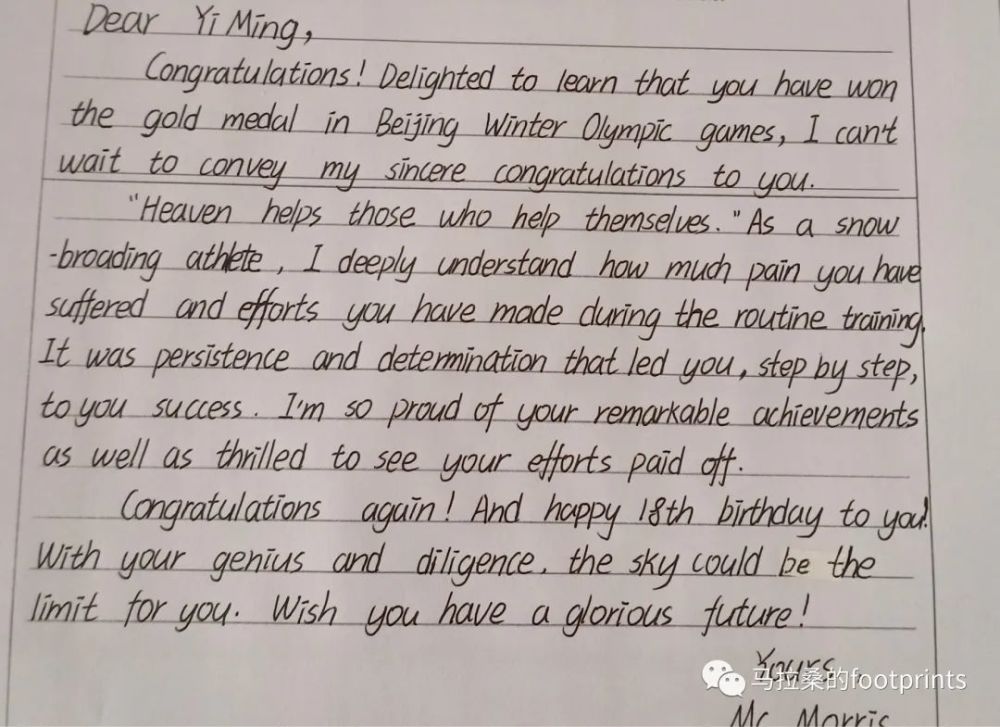 Dear Yi Ming,
Congratulations! Delighted to learn that you have won
the gold medal in Beijing Winter Olympic games, I can't
wait to convey my sincere congratulations to you.
"Heaven helps those who help themselves." As a snow
-broading athlete, I deeply understand how much pain you have
suffered and efforts you have made during the routine training.
It was persistence and determination that led you, step by step,
to you success. I'm so proud of your remarkable achievements
as well as thrilled to see your efforts paid off.
Congratulations again! And happy 18th birthday to you!
With your genius and diligence, the sky could be the
limit for you. Wish you have a glorious future!
Yours,
马拉桑的footprints
Mc Morris